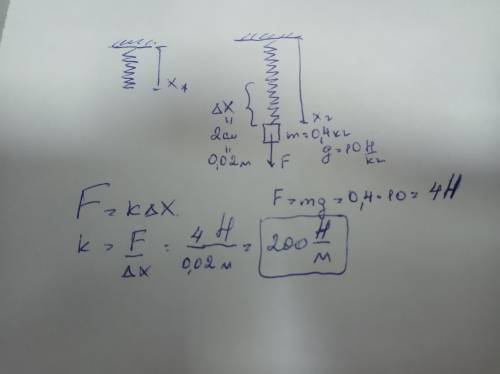 x₁
Δx
=
2см
=
0,02м
x₂
m=0,4кг
g=10 Н/кг
F
F=mg=0,4·10=4Н
F=kΔx.
k = F/Δx = 4 Н/0,02 м = 200 Н/м